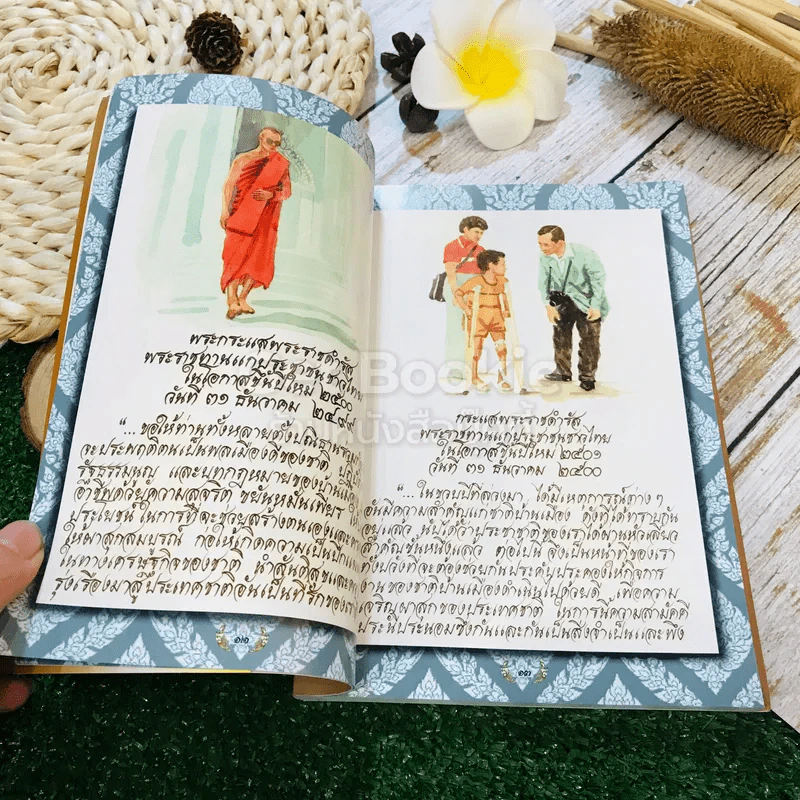 พระกระแสพระราชดำรัส
พระราชทานแก่ประชาชนชาวไทย
ในโอกาสขึ้นปีใหม่ ๒๕๐๐
วันที่ ๓๑ ธันวาคม ๒๔๙๙
"... ขอให้ท่านทั้งหลายตั้งปณิธาน
จะประพฤติตนเป็นพลเมืองดีของชาติ
รัฐธรรมนูญ และบทกฎหมายของบ้านเมือง
อาชีพด้วยความสุจริต ขยันหมั่นเพียร
ประโยชน์ ในการที่จะช่วยสร้างตนเองและ
ให้ผาสุกสมบูรณ์ ก่อให้เกิดความเป็นปึกแผ่น
ในทางเศรษฐกิจของชาติ นำสันติสุขและ
รุ่งเรืองมาสู่ประเทศชาติอันเป็นที่รักของ
๑๒
กระแสพระราชดำรัส
พระราชทานแก่ประชาชนชาวไทย
ในโอกาสขึ้นปีใหม่ ๒๕๐๑
วันที่ ๓๑ ธันวาคม ๒๕๐๐
"... ในชั่วปีที่ล่วงมา ได้มีเหตุการณ์ต่างๆ
อันมีความสำคัญแก่ชาติบ้านเมือง ดังที่ได้ทราบกัน
อยู่แล้ว นับได้ว่าประชาชาติของเราได้ผ่านหัวเลี้ยว
สำคัญขั้นหนึ่งแล้ว ต่อไปนี้ จึงเป็นหน้าที่ของเรา
ทั้งปวงที่จะต้องช่วยกันประคับประคองให้กิจการ
งานของชาติบ้านเมืองดำเนินไปด้วยดี เพื่อความ
เจริญผาสุกของประเทศชาติ ในการนี้ความสามัคคี
ประนีประนอมซึ่งกันและกันเป็นสิ่งจำเป็นและพึง
๑๓
Booknie
ร้านหนังสือ